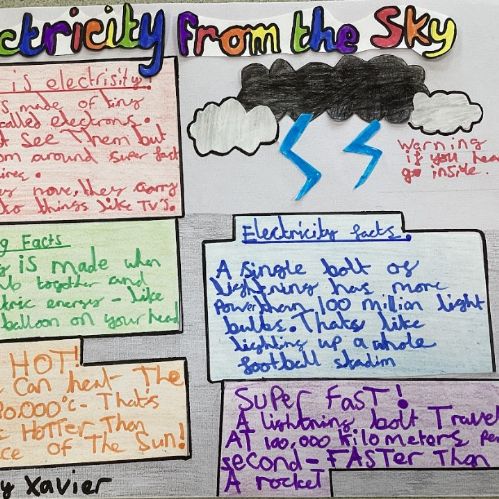 ctricity from the Sky
is electrisity?
s made of tiny
called electrons.
t see Them but
om around super fast
ires.
move, they carry
to things like TV's.
Warning
if you hea
go inside.
g Facts
is made when
ub together and
tric energy - like
balloon on your head
Electricity facts.
A single bolt of
lightning has more
power than 100 million light
bulbs. Thats like
lighting up a whole
football stadim
HOT!
Can heat The
0.000°c - That's
Hotter Than
ce of The Sun!
Super Fast!
A lightning bolt Travel
AT 100,000 kilometers pe
second - FASTER Than
A rocket
y Xavier